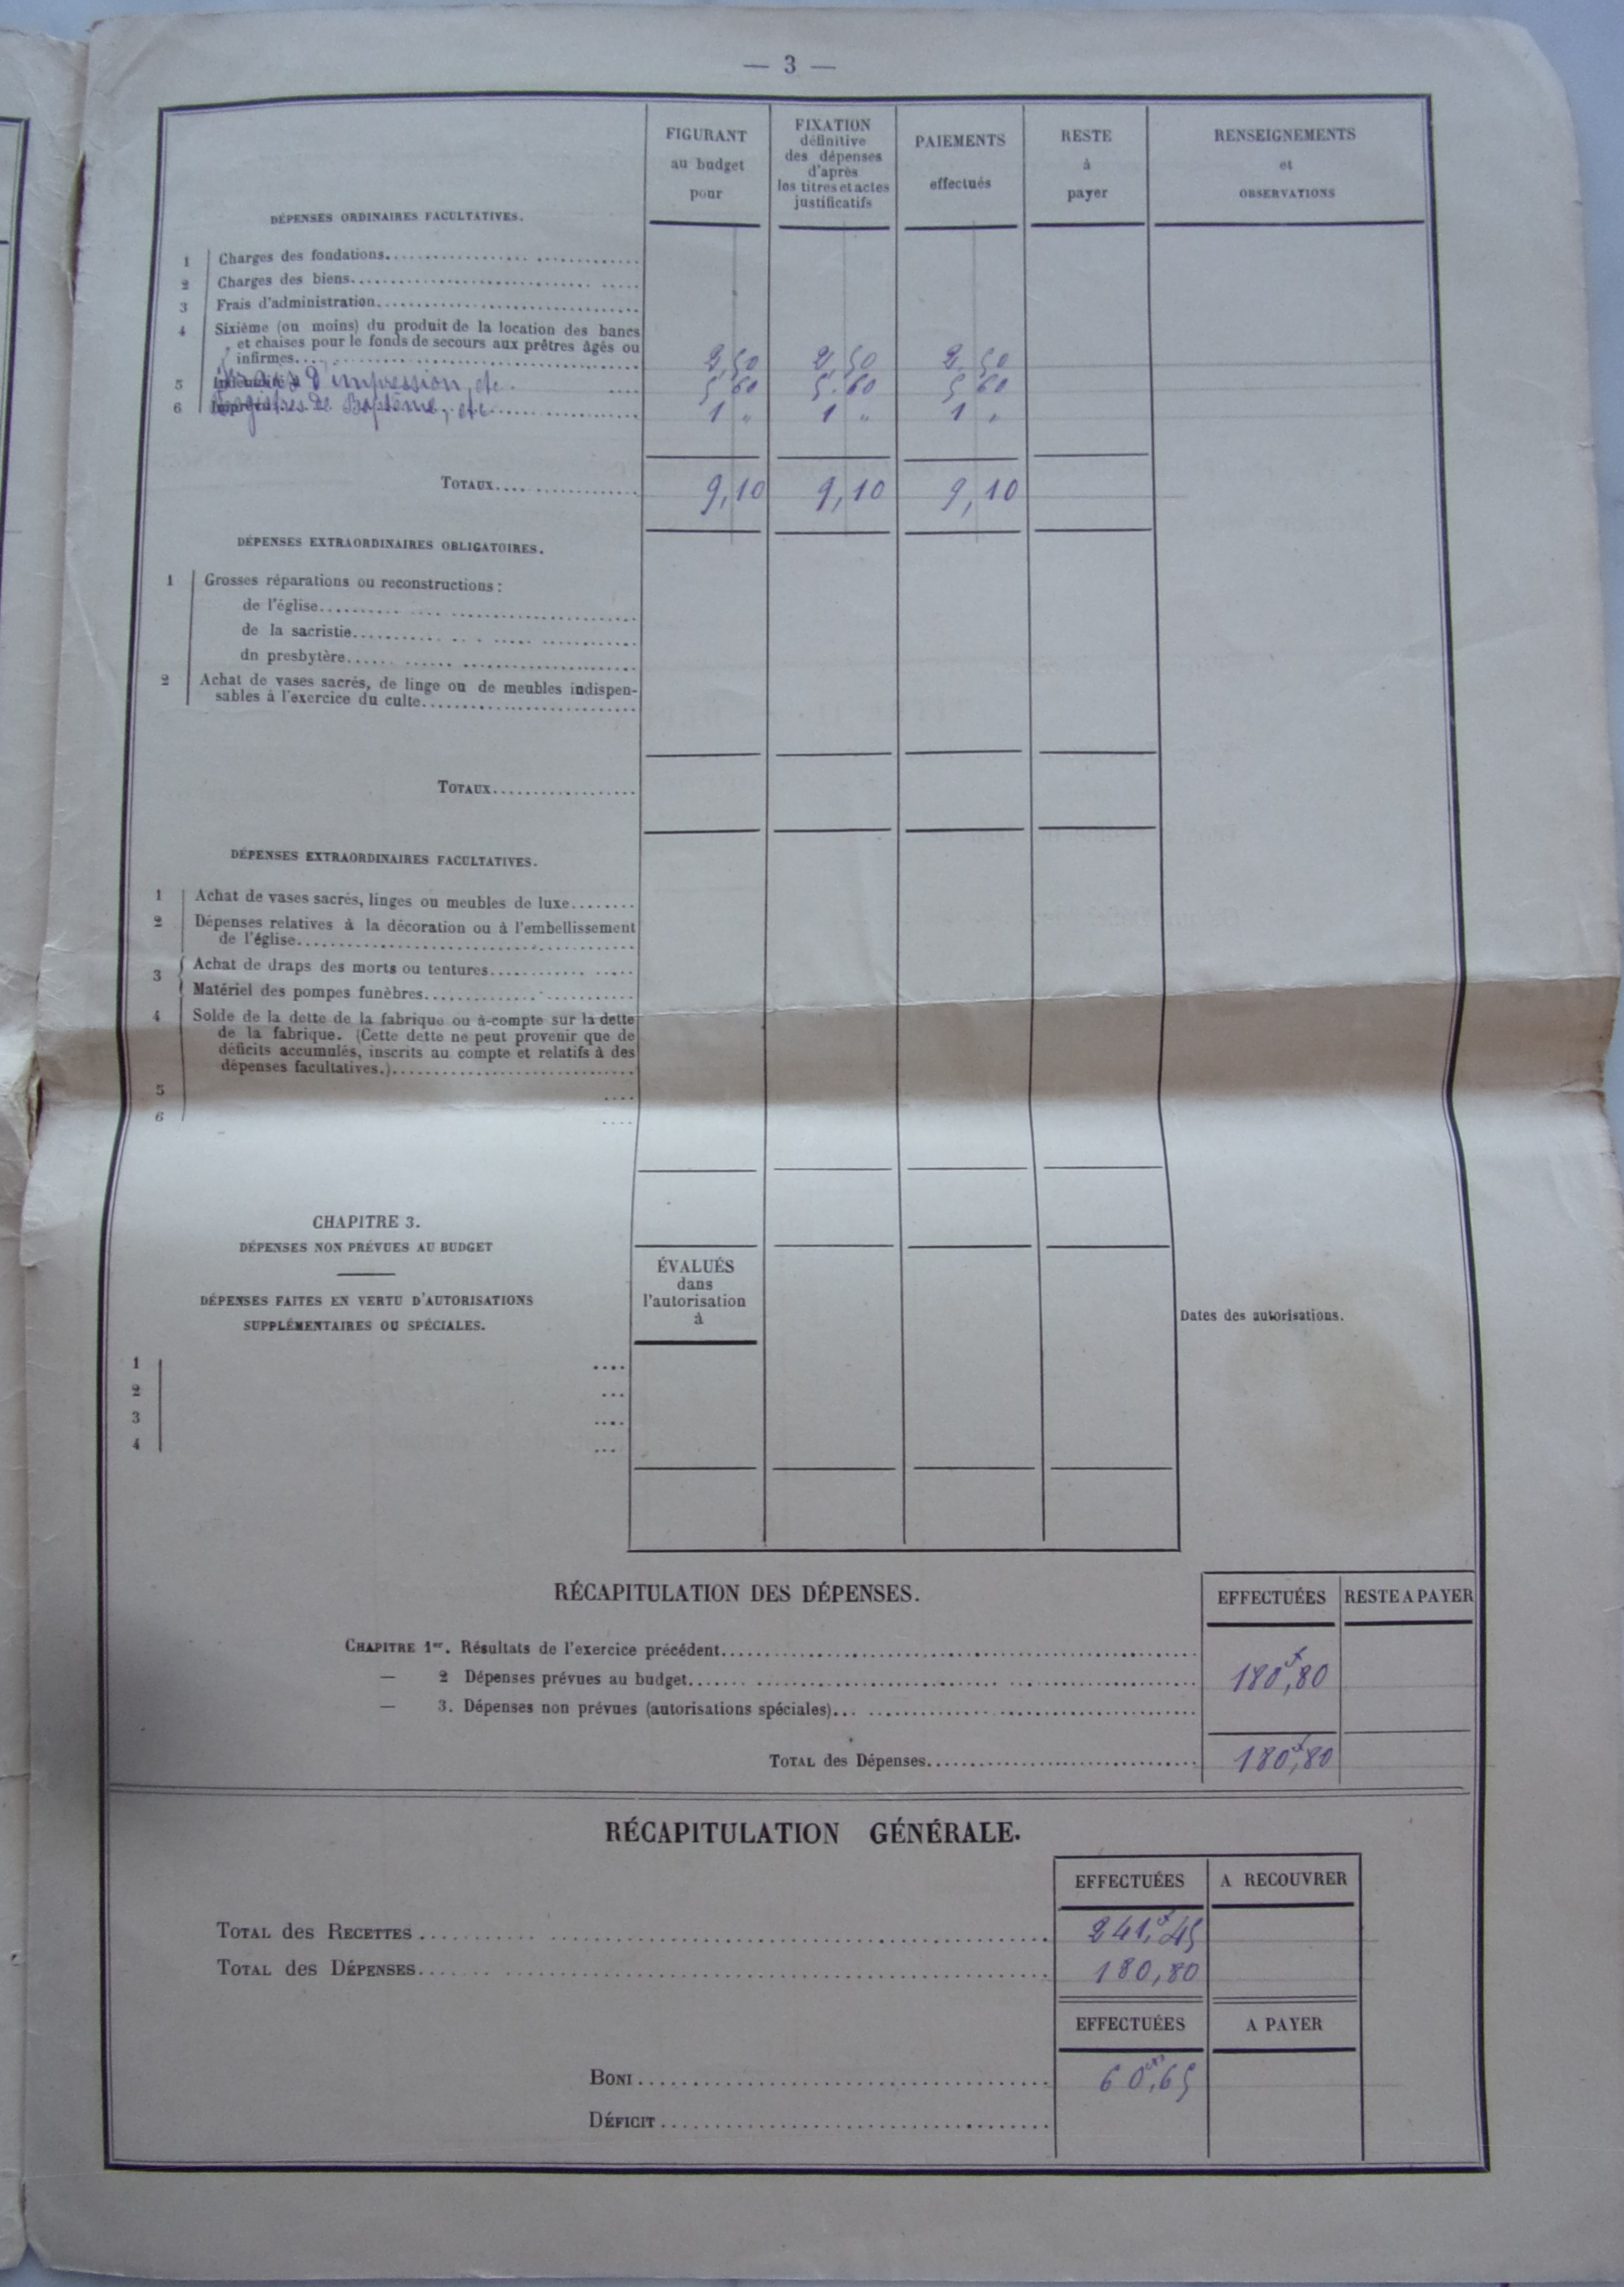 — 3 —
FIGURANT
au budget
pour
FIXATION
définitive
des dépenses
d'après
les titres et actes
justificatifs
PAIEMENTS
effectués
RESTE
à
payer
RENSEIGNEMENTS
et
OBSERVATIONS
DÉPENSES ORDINAIRES FACULTATIVES.
1 Charges des fondations
2 Charges des biens
3 Frais d'administration
4 Sixième (ou moins) du produit de la location des bancs
et chaises pour le fonds de secours aux prêtres âgés ou
infirmes 2,50 2,50 2,50
5 d'impression, etc. 5,60 5.60 5,60
6 Registres de Baptême, etc 1 " 1 " 1 "
TOTAUX 9,10 9,10 9,10
DÉPENSES EXTRAORDINAIRES OBLIGATOIRES.
1 Grosses réparations ou reconstructions :
de l'église
de la sacristie
dn presbytère
2 Achat de vases sacrés, de linge ou de meubles indispen-
sables à l'exercice du culte
TOTAUX
DÉPENSES EXTRAORDINAIRES FACULTATIVES.
1 Achat de vases sacrés, linges ou meubles de luxe
2 Dépenses relatives à la décoration ou à l'embellissement
de l'église
3 Achat de draps des morts ou tentures
Matériel des pompes funèbres
4 Solde de la dette de la fabrique ou à-compte sur la dette
de la fabrique. (Cette dette ne peut provenir que de
déficits accumulés, inscrits au compte et relatifs à des
dépenses facultatives.)
5
6
CHAPITRE 3.
DÉPENSES NON PRÉVUES AU BUDGET
DÉPENSES FAITES EN VERTU D'AUTORISATIONS
SUPPLÉMENTAIRES OU SPÉCIALES.
ÉVALUÉS
dans
l'autorisation
à
Dates des autorisations.
1
2
3
4
RÉCAPITULATION DES DÉPENSES.
EFFECTUÉES RESTE A PAYER
CHAPITRE 1er. Résultats de l'exercice précédent
— 2 Dépenses prévues au budget 180f,80
— 3. Dépenses non prévues (autorisations spéciales)
TOTAL des Dépenses 180f,80
RÉCAPITULATION GÉNÉRALE.
EFFECTUÉES A RECOUVRER
TOTAL des RECETTES 241f,45
TOTAL des DÉPENSES 180,80
EFFECTUÉES A PAYER
BONI 60,65
DÉFICIT